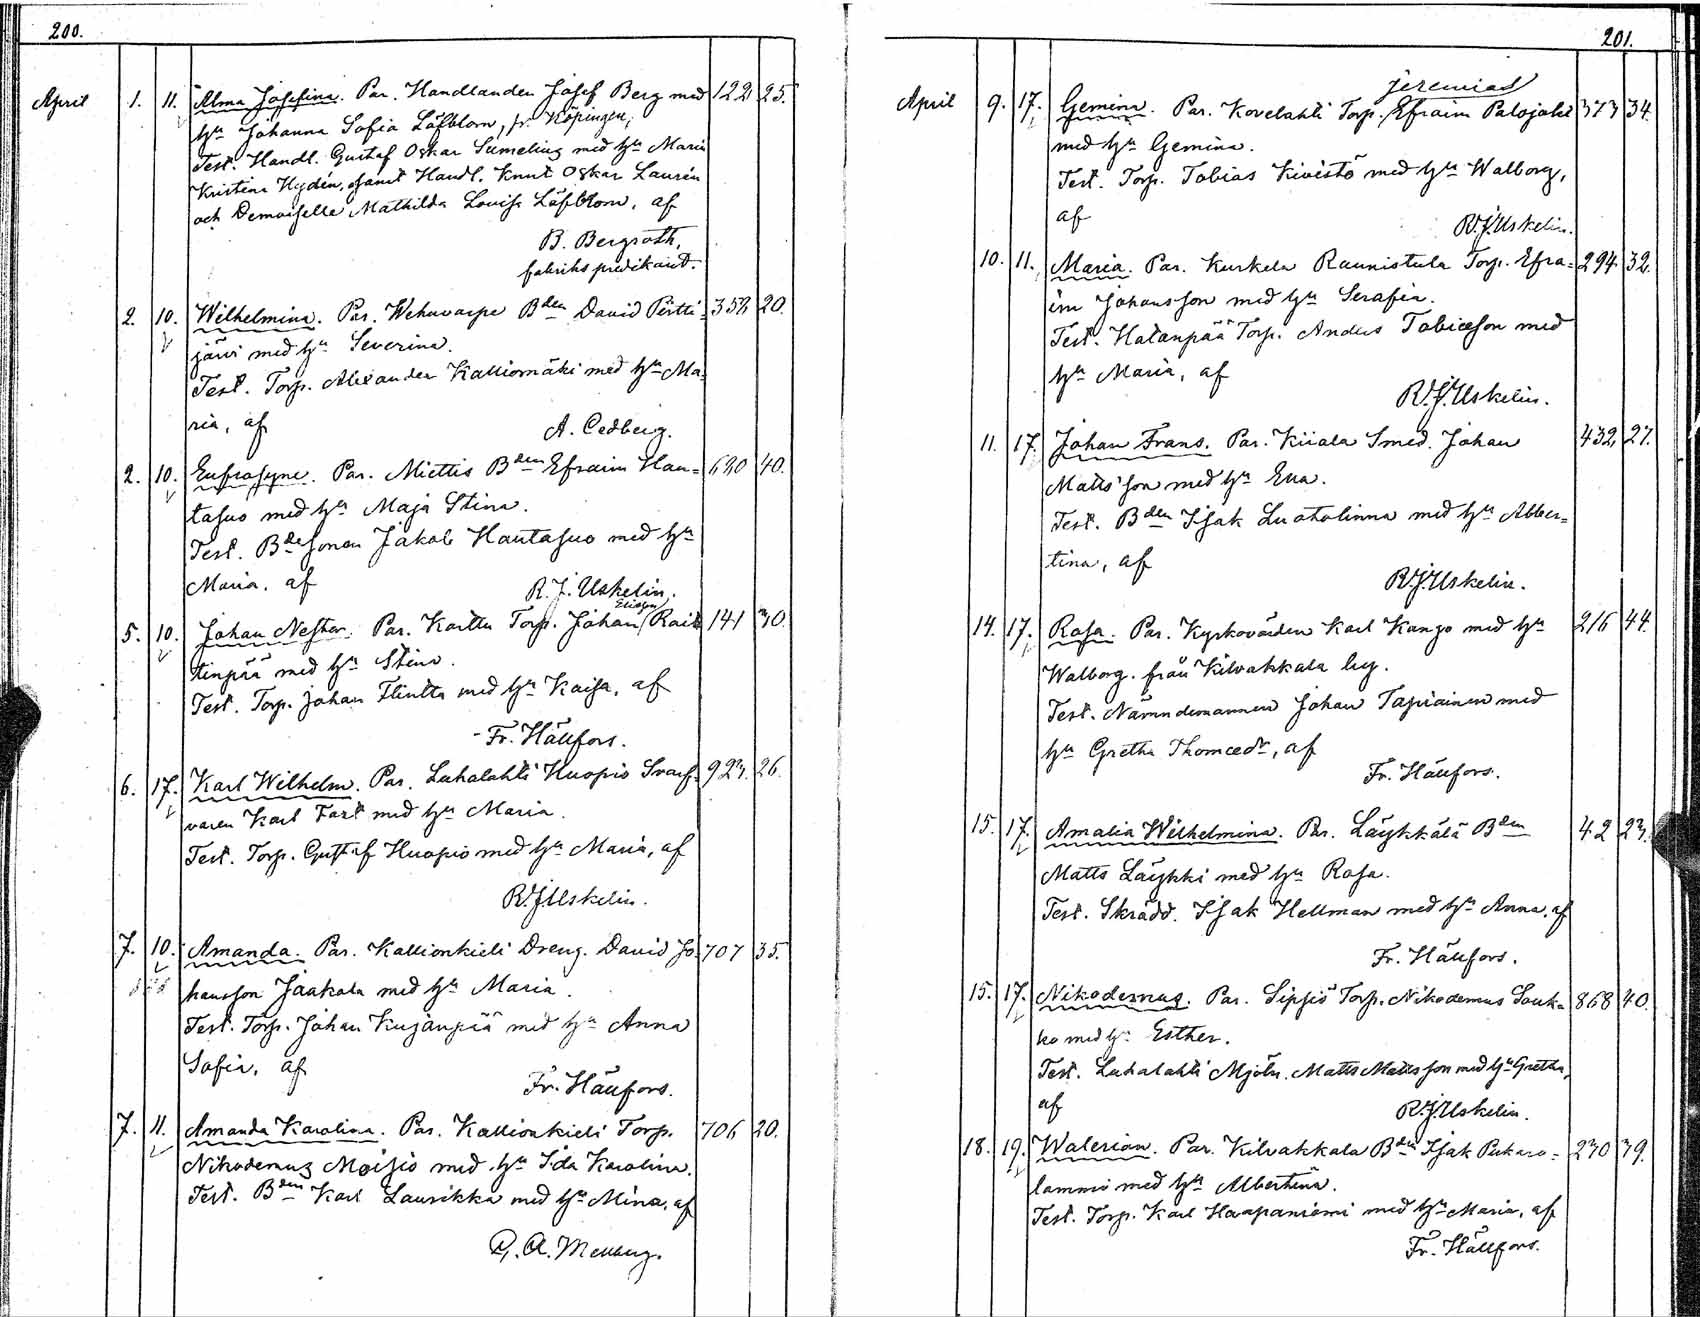 200.
April 1. 11. Alma Josefina. Par. Handlanden Josef Berg med 122 25.
hu Johanna Sofia Löfblom, fr. Köpingen,
Test. Handl. Gustaf Oskar Sumelius med hu Maria
Kristina Hydén, samt Handl. Knut Oskar Laurén
och Demoiselle Mathilda Lovisa Löfblom, af
B. Bergroth,
fabriks predikant.
2. 10. Wilhelmina. Par. Wehuvarpe Bden David Pertti= 352 20.
järvi med hu Severina.
Test. Torp. Alexander Kalliomäki med hu Ma=
ria, af
A. Cedberg.
2. 10. Eufrosyne. Par. Miettis Bden Efraim Hau= 620 40.
tasuo med hu Maja Stina.
Test. Bdesonen Jakob Hautasuo med hu
Maria. af
R. J. Uskelin.
Eliasson
5. 10. Johan Nestor. Par. Karttu Torp. Johan Rait 141 30.
tinpää med hu Stina.
Test. Torp. Johan Flintta med hu Kaisa, af
Fr. Hällfors.
6. 17. Karl Wilhelm. Par. Luhalahti Huopio Svarf= 923. 26.
varen Karl Fast med hu Maria.
Test. Torp. Gustaf Huopio med hu Maria, af
R.J.Uskelin.
7. 10. Amanda. Par. Kallionkieli Dreng. David Jo 707 35.
hansson Jaakala med hu Maria.
Test. Torp. Johan Kujanpää med hu Anna
Sofia, af
Fr. Hällfors.
7. 11. Amanda Karolina. Par. Kallionkieli Torp. 706 20.
Nikodemus Moisio med hu Ida Karolina.
Test. Bden Karl Laurikka med hu Mina, af
G. A. Mellberg.
201.
Jeremias
April 9. 17. Gemina. Par. Kovelahti Torp. Efraim Palojoki 373 34.
med hu Gemina.
Test. Torp. Tobias Kivistö med hu Walborg,
af
R.J.Uskelin.
10. 11. Maria. Par. Kurkela Raunistula Torp. Efra= 294 32.
im Johansson med hu Serafia.
Test. Hatanpää Torp. Anders Tobiasson med
hu Maria, af
R.J.Uskelin.
11. 17. Johan Frans. Par. Kiiala Smed. Johan 432 27.
Matts'son med hu Eva.
Test. Bden Isak Luotolinna med hu Alber=
tina, af
R.J.Uskelin.
14. 17. Rosa. Par. Kyrkovärden Karl Kango med hu 216 44.
Walborg. från Kilvakkala by.
Test. Nämndemannen Johan Tapiainen med
hu Gretha Thomædr, af
Fr. Hällfors.
15. 17. Amalia Wilhelmina. Par. Läykkälä Bden 42 23.
Matts Läykki med hu Rosa.
Test. Skrädd. Isak Hellman med hu Anna. af
Fr. Hällfors.
15. 17. Nikodemus. Par. Sipsiö Torp. Nikodemus Souk= 868 40.
ko med hu Esther.
Test. Luhalahti Mjöln. Matts Mattsson med hu Gretha,
af
R.J.Uskelin.
18. 19. Walerian. Par. Kilvakkala Bden Isak Pukara= 230 39.
lammi med hu Albertina.
Test. Torp. Karl Haapaniemi med hu Maria, af
Fr. Hällfors.